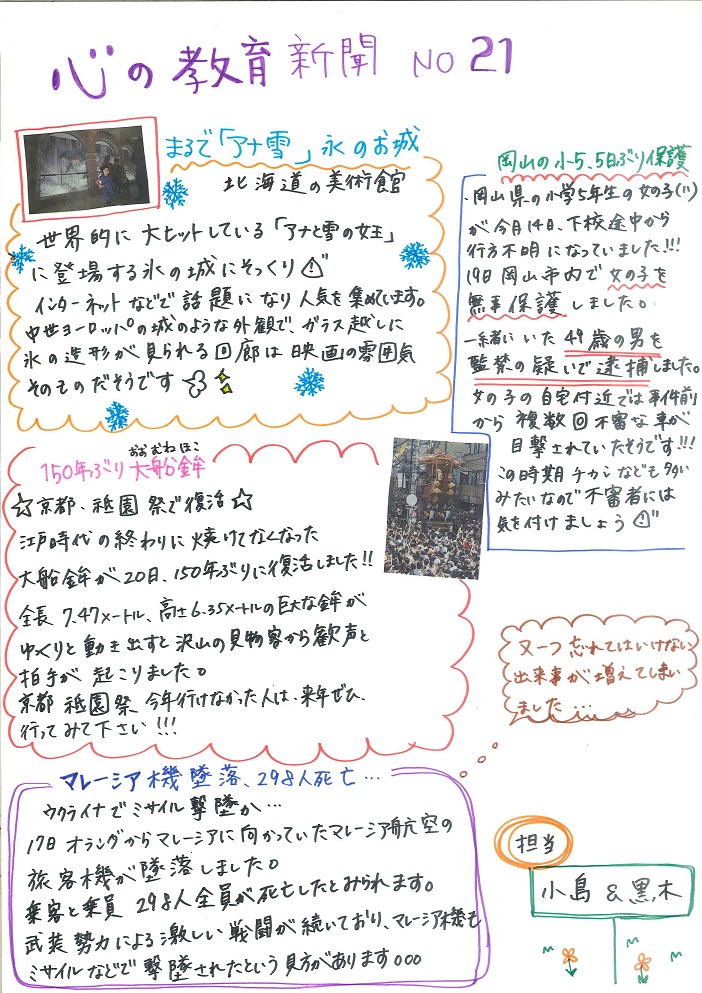 心の教育新聞 NO 21
まるで「アナ雪」氷のお城
北海道の美術館
世界的に大ヒットしている「アナと雪の女王」
に登場する氷の城にそっくり!
インターネットなどで話題になり人気を集めています。
中世ヨーロッパの城のような外観で、ガラス越しに
氷の造形が見られる回廊は映画の雰囲気
そのものだそうです
岡山の小5、5日ぶり保護
・岡山県の小学5年生の女の子(11)
が今月14日、下校途中から
行方不明になっていました!!!
19日岡山市内で女の子を
無事保護しました。
一緒にいた49歳の男を
監禁の疑いで逮捕しました。
女の子の自宅付近では事件前
から複数回不審な車が
目撃されていたそうです!!!
この時期チカンなども多い
みたいなので不審者には
気を付けましょう!
おおふねほこ
150年ぶり大船鉾
☆京都、祗園祭で復活☆
江戸時代の終わりに焼けてなくなった
大船鉾が20日、150年ぶりに復活しました!!
全長7.47メートル、高さ6.35メートルの巨大な鉾が
ゆっくりと動き出すと沢山の見物客から歓声と
拍手が起こりました。
京都祗園祭今年行けなかった人は、来年ぜひ、
行ってみて下さい!!!
又一つ忘れてはいけない
出来事が増えてしまい
ました…
マレーシア機墜落、298人死亡…
ウクライナでミサイル撃墜か…
17日オランダからマレーシアに向かっていたマレーシア航空の
旅客機が墜落しました。
乗客と乗員298人全員が死亡したとみられます。
武装勢力による激しい戦闘が続いており、マレーシア機も
ミサイルなどで撃墜されたという見方があります。。。
担当
小島&黒木